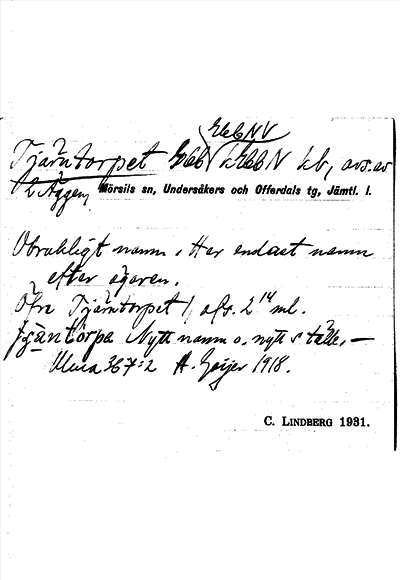 EkbNV
Tjärntorpet Ekb EkbN kb, avs. av
Äggen, Mörsils sn, Undersåkers och Offerdals tg, Jämtl. l.
Obrukligt namn. Har endast namn
efter ägaren.
Öfre Tjärntorpet 1, afs. 2 14 ml.
tjäntorpa Nytt namn o. nytt ställe. —
Ulma 367:2 A. Geijer 1918.
C. LINDBERG 1931.